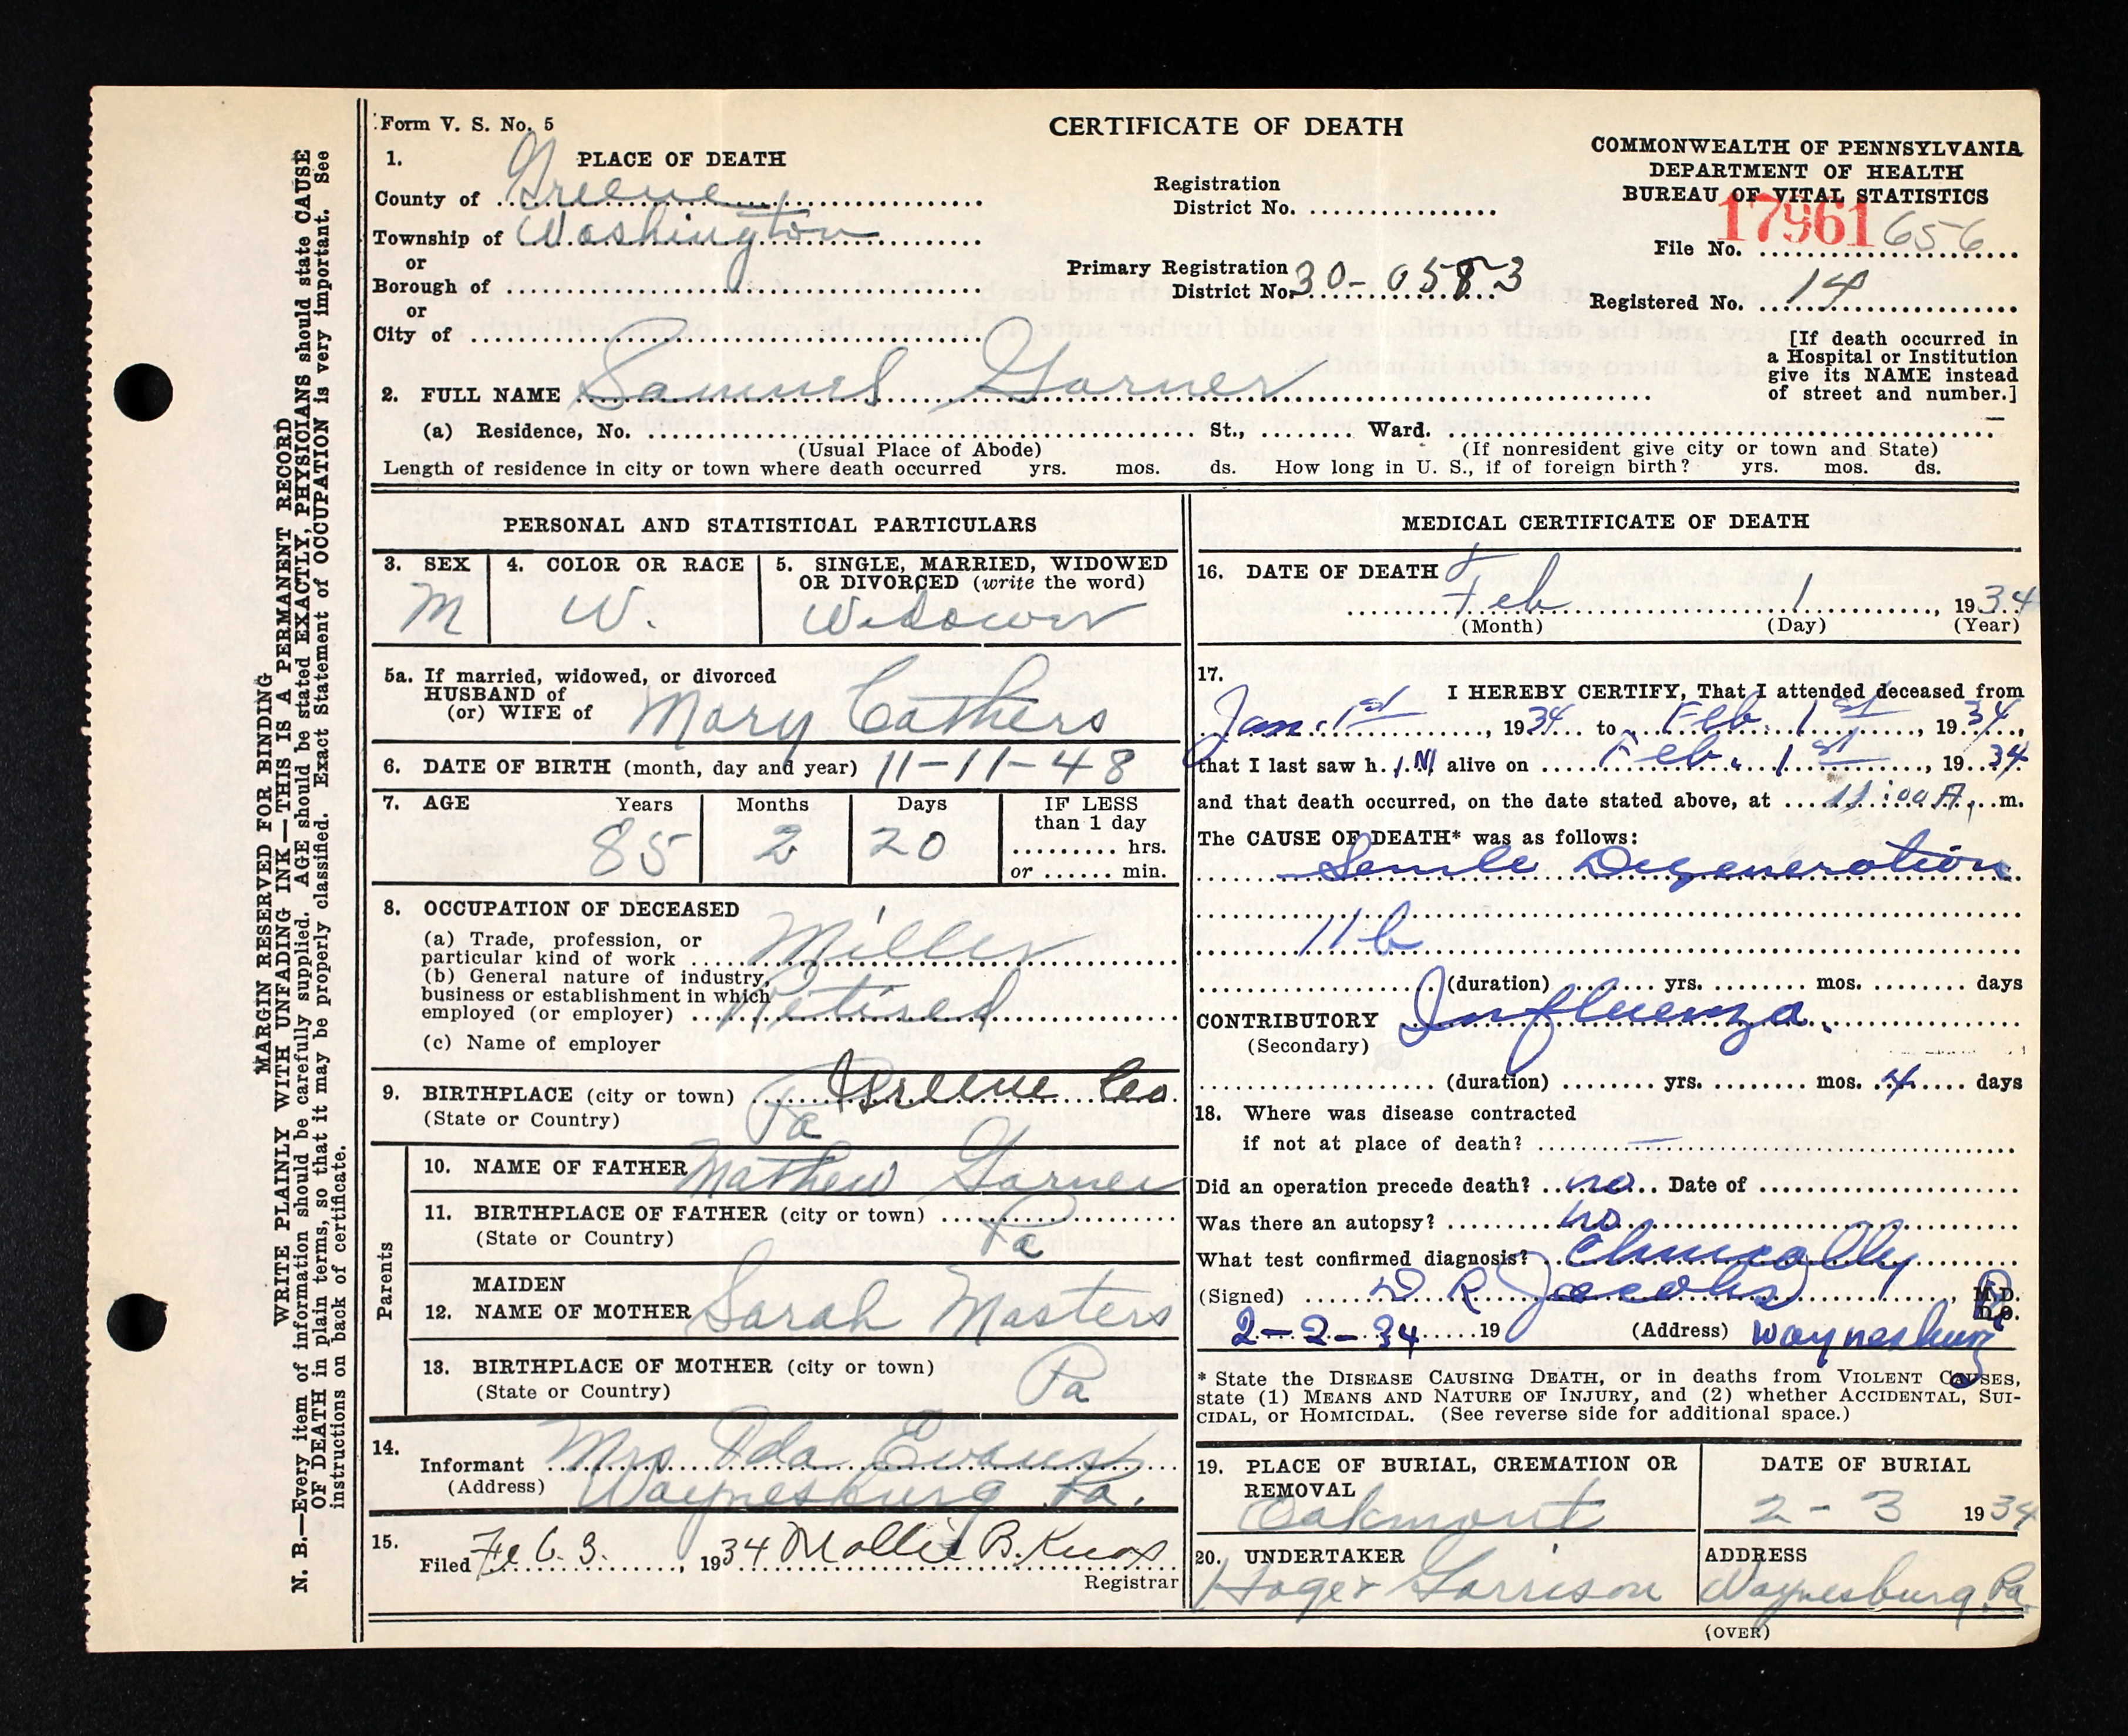 Form V. S. No. 5
CERTIFICATE OF DEATH
COMMONWEALTH OF PENNSYLVANIA
DEPARTMENT OF HEALTH
BUREAU OF VITAL STATISTICS
1. PLACE OF DEATH
County of Greene
Township of Washington
or
Borough of
or
City of
Registration
District No.
Primary Registration
District No. 30-0583
17961 656
File No.
Registered No. 14
[If death occurred in
a Hospital or Institution
give its NAME instead
of street and number.]
2. FULL NAME Samuel Garner
(a) Residence, No. St., Ward.
(Usual Place of Abode) (If nonresident give city or town and State)
Length of residence in city or town where death occurred yrs. mos. ds. How long in U. S., if of foreign birth? yrs. mos. ds.
PERSONAL AND STATISTICAL PARTICULARS
3. SEX
M
4. COLOR OR RACE
W.
5. SINGLE, MARRIED, WIDOWED
OR DIVORCED (write the word)
Widower
5a. If married, widowed, or divorced
HUSBAND of
(or) WIFE of Mary Cathers
6. DATE OF BIRTH (month, day and year) 11-11-48
7. AGE Years Months Days IF LESS
than 1 day
85 2 20
hrs.
or min.
8. OCCUPATION OF DECEASED
(a) Trade, profession, or
particular kind of work Miller
(b) General nature of industry,
business or establishment in which
employed (or employer) Retired
(c) Name of employer
9. BIRTHPLACE (city or town) Greene Co
(State or Country) Pa
Parents
10. NAME OF FATHER Mathew Garner
11. BIRTHPLACE OF FATHER (city or town)
(State or Country) Pa
MAIDEN
12. NAME OF MOTHER Sarah Masters
13. BIRTHPLACE OF MOTHER (city or town)
(State or Country) Pa
14.
Informant Mrs Ida Evans
(Address) Waynesburg Pa.
15.
Filed Feb. 3. , 1934 Mollie B. Knox
Registrar
MEDICAL CERTIFICATE OF DEATH
16. DATE OF DEATH
Feb 1 , 1934
(Month) (Day) (Year)
17.
I HEREBY CERTIFY, That I attended deceased from
Jan. 1st , 1934 to Feb. 1st , 1934,
that I last saw h im alive on Feb. 1st , 1934
and that death occurred, on the date stated above, at 11:00 A. m.
The CAUSE OF DEATH* was as follows:
Senile Degeneration
11b
(duration) yrs. mos. days
CONTRIBUTORY Influenza.
(Secondary)
(duration) yrs. mos. 4 days
18. Where was disease contracted
if not at place of death? —
Did an operation precede death? no Date of
Was there an autopsy? no
What test confirmed diagnosis? Clinically
(Signed) D R Jacobs , M.D.
D.O.
2-2-34 19 (Address) Waynesburg
* State the DISEASE CAUSING DEATH, or in deaths from VIOLENT CAUSES,
state (1) MEANS AND NATURE OF INJURY, and (2) whether ACCIDENTAL, SUI-
CIDAL, or HOMICIDAL. (See reverse side for additional space.)
19. PLACE OF BURIAL, CREMATION OR
REMOVAL
Oakmont
DATE OF BURIAL
2-3 1934
20. UNDERTAKER
Hoge & Garrison
ADDRESS
Waynesburg Pa.
(OVER)
MARGIN RESERVED FOR BINDING
WRITE PLAINLY WITH UNFADING INK—THIS IS A PERMANENT RECORD
N. B.—Every item of information should be carefully supplied. AGE should be stated EXACTLY, PHYSICIANS should state CAUSE
OF DEATH in plain terms, so that it may be properly classified. Exact Statement of OCCUPATION is very important. See
instructions on back of certificate.